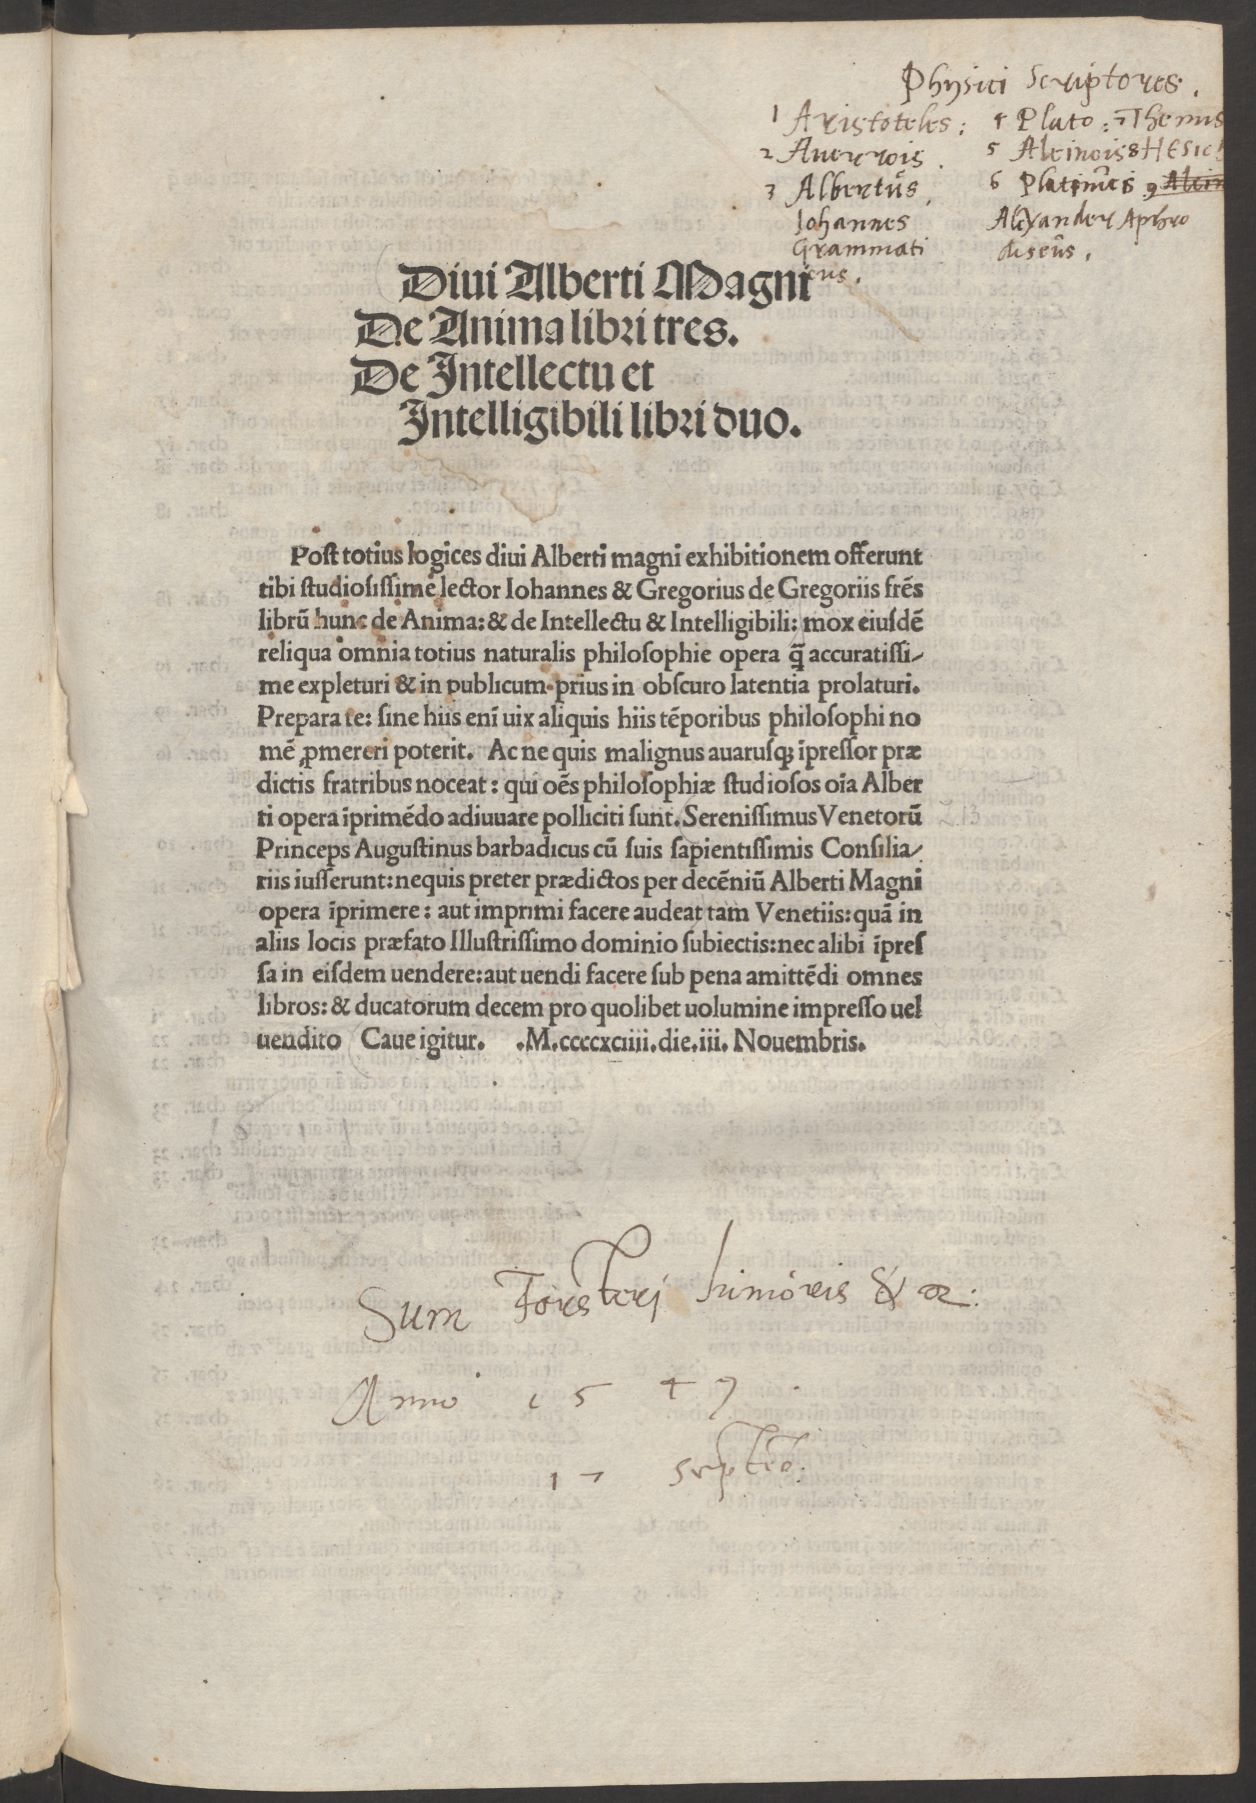 Physici Scriptores.
1 Aristoteles: 4 Plato: 7 Themis
2 Auerrois. 5 Alcinois 8 HESIC
3 Albertus. 6 Plotinus 9 Alcin
Iohannes Alexander Aphro
Grammati diseus.
cus.
Diui Alberti Magni
De Anima libri tres.
De Intellectu et
Intelligibili libri duo.
Post totius logices diui Alberti magni exhibitionem offerunt
tibi studiosissime lector Iohannes & Gregorius de Gregoriis frēs
librū hunc de Anima: & de Intellectu & Intelligibili: mox eiusdē
reliqua omnia totius naturalis philosophie opera q̄ accuratissi-
me expleturi & in publicum prius in obscuro latentia prolaturi.
Prepara te: sine hiis enī uix aliquis hiis tēporibus philosophi no
mē ꝓmereri poterit. Ac ne quis malignus auarusqꝫ īpressor præ
dictis fratribus noceat: qui oēs philosophiæ studiosos oīa Alber
ti opera īprimēdo adiuuare polliciti sunt. Serenissimus Venetorū
Princeps Augustinus barbadicus cū suis sapientissimis Consilia-
riis iusserunt: nequis preter prædictos per decēniū Alberti Magni
opera īprimere: aut imprimi facere audeat tam Venetiis: quā in
aliis locis præfato Illustrissimo dominio subiectis: nec alibi īpres
sa in eisdem uendere: aut uendi facere sub pena amittēdi omnes
libros: & ducatorum decem pro quolibet uolumine impresso uel
uendito Caue igitur. .M.ccccxciiii.die.iii. Nouembris.
Sum Forsteri &
Anno 1547
17 septēb: